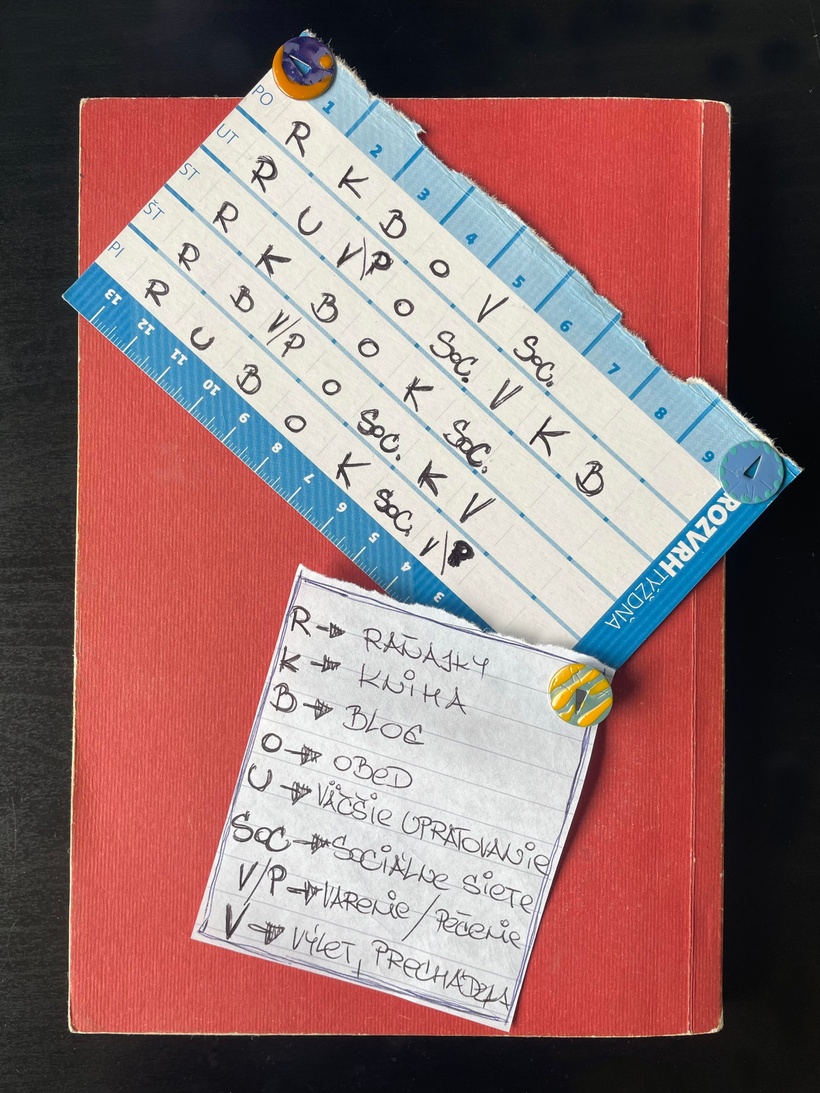 1 2 3 4 5 6 7 8 9
PO R K B O V Soc.
UT R U V/P O Soc. V K B
ST R K B O K Soc.
ŠT R B V/P O Soc. K V
PI R U B O K Soc. V/P
13 12 11 10 9 8 7 6 5 4 3
ROZVRH TÝŽDŇA
R → RAŇAJKY
K → KNiHA
B → BLOG
O → OBeD
U → VÄČŠie UPRATOVANie
SoC → SoCiÁLNe SieTe
V/P → VARENie/PeČeNie
V → VÝLeT, PRECHÁDZKA